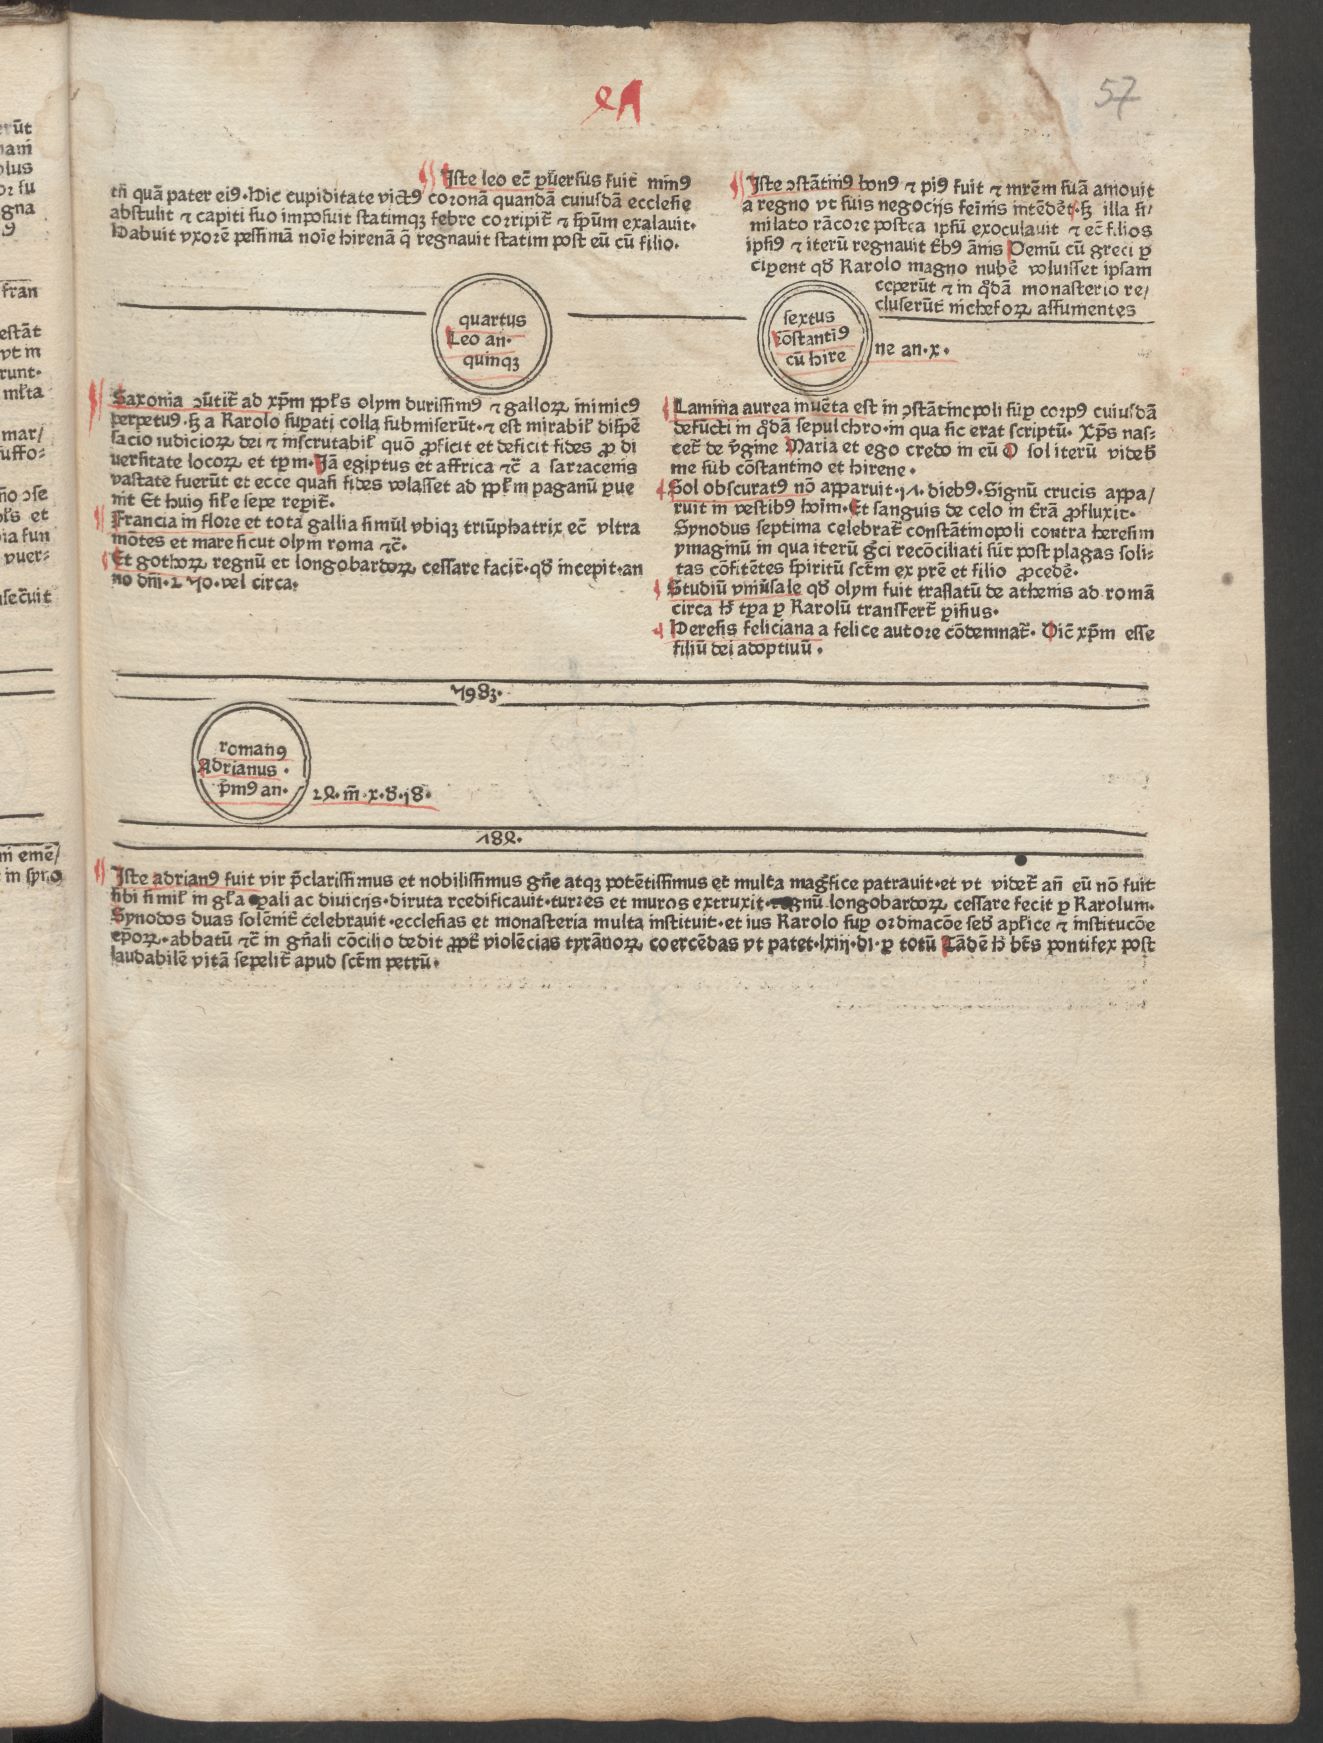 57
Iste leo ec̄ ꝑv̄ersus fuit̄ min9
tn̄ quā pater ei9·Hic cupiditate vict9 coronā quandā cuiusdā ecclesie
abstulit ⁊ capiti suo imposuit statimqꝫ febre corripit̄ ⁊ spūm exalauit·
Habuit vxorē pessimā noīe hirenā q̄ regnauit statim post eū cū filio·
Iste ↄstātin9 bon9 ⁊ pi9 fuit ⁊ mrēm suā amouit
a regno vt suis negocijs feīnis intēdēt·sꝫ illa si/
milato rācore postea ipsū exoculauit ⁊ ec̄ filios
ipsi9 ⁊ iterū regnauit trib9 ānis Demū cū greci ꝑ
ciꝑent qd̄ Karolo magno nubē voluisset ipsam
ceperūt ⁊ in qdā monasterio re/
cluserūt nicheforꝝ assumentes
quartus
Leo an·
quinqꝫ
sextus
cōstanti9
cū hire
ne an·x·
Saxonia ↄūtit̄ ad xp̄m ppl̄s olym durissim9 ⁊ gallorꝝ inimic9
perpetu9·sꝫ a Karolo suꝑati colla submiserūt·⁊ est mirabil̄ dispē
sacio iudiciorꝝ dei ⁊ inscrutabil̄ quō ꝓficit et deficit fides ꝓ di
uersitate locorꝝ et tp̄m·Iā egiptus et affrica ⁊c̄ a sarracenis
vastate fuerūt et ecce quasi fides volasset ad ppl̄m paganū ꝑue
nit Et hui9 sil̄e sepe reꝑit̄·
Francia in flore et tota gallia simūl vbiqꝫ triūphatrix ec̄ vltra
mōtes et mare sicut olym roma ⁊c̄·
Et gothorꝝ regnū et longobardorꝝ cessare facit̄·qd̄ incepit·an
no dn̄i·270·vel circa·
Lamina aurea inuēta est in ↄstātincpoli suꝑ corp9 cuiusdā
defūcti in qdā sepulchro·in qua sic erat scriptū· Xp̄s nas⸗
cet̄ de v̄gine Maria et ego credo in eū O sol iterū videb̄
me sub cōstantino et hirene·
Sol obscurat9 nō apparuit·17·dieb9·Signū crucis appa/
ruit in vestib9 hoīm·Et sanguis de celo in trā ꝓfluxit·
Synodus septima celebrat̄ constātinopoli contra heresim
ymaginū in qua iterū gci recōciliati sūt post plagas soli⸗
tas cōfitētes spiritū sctm ex prē et filio ꝓcedē·
Studiū vniūsale qd̄ olym fuit traslatū de athenis ad romā
circa h̄ tꝑa ꝑ Karolū transfert̄ ꝑisius·
Heresis feliciana a felice autore cōdemnat̄· Dic̄ xp̄m esse
filiū dei adoptiuū·
798ꝫ·
roman9
Adrianus·
p̄m9 an·
24·m̄·x·d·18·
784·
Iste adrian9 fuit vir p̄clarissimus et nobilissimus gn̄e atqꝫ potētissimus et multa magfice patrauit·et vt videt̄ an̄ eū nō fuit
sibi simil̄ in gl̄a ꝑpali ac diuicijs·diruta reedificauit·turres et muros extruxit·regnū longobardorꝝ cessare fecit ꝑ Karolum·
Synodos duas solēmit̄ celebrauit·ecclesias et monasteria multa instituit·et ius Karolo suꝑ ordinacōe sed̄ apl̄ice ⁊ institucōe
ep̄orꝝ·abbatū ⁊c̄ in gn̄ali cōcilio dedit ꝓpt̄ violēcias tyrānorꝝ coercēdas vt patet·lxiij·di·ꝑ totū Tādē h̄ bt̄s pontifex post
laudabilē vitā sepelit̄ apud sctm petrū·